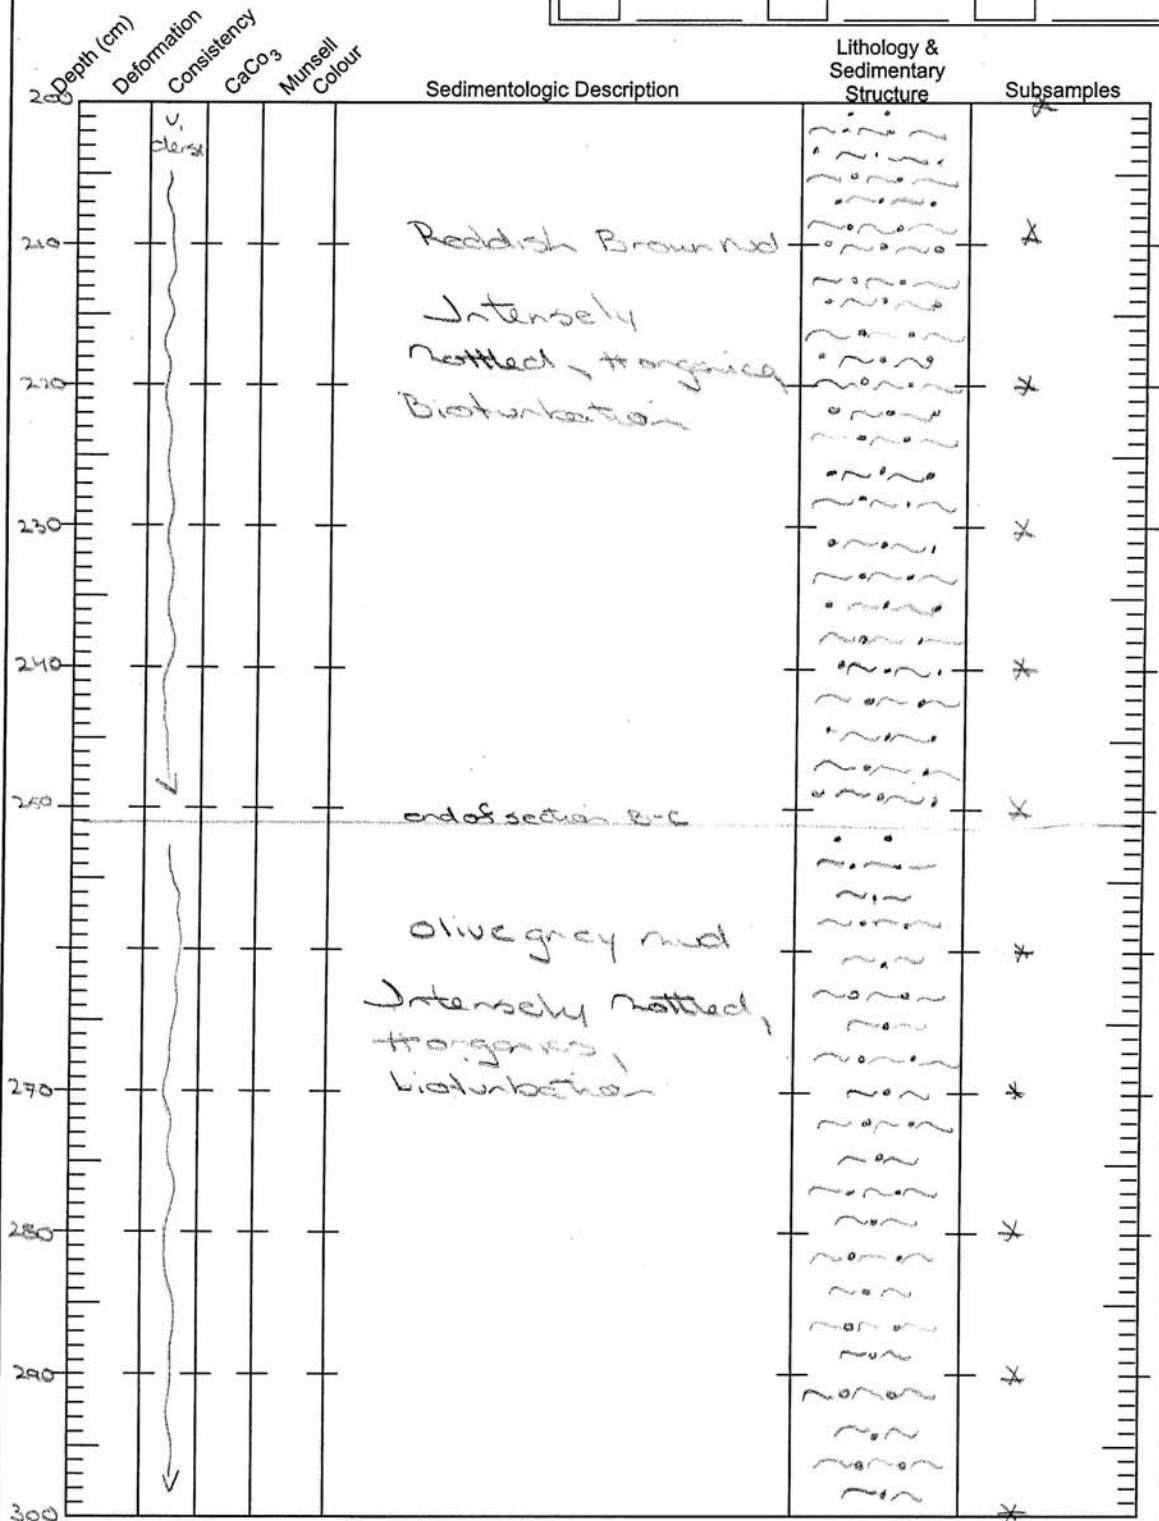 Depth (cm)
Deformation
Consistency
CaCo3
Munsell
Colour
Sedimentologic Description
Lithology &
Sedimentary
Structure
Subsamples
200
v.
dense
210
Reddish Brown mud
Intensely
mottled, organics
Bioturbation
220
230
240
250
end of section B-C
Olive grey mud
Intensely mottled,
organics,
bioturbation
270
280
290
300